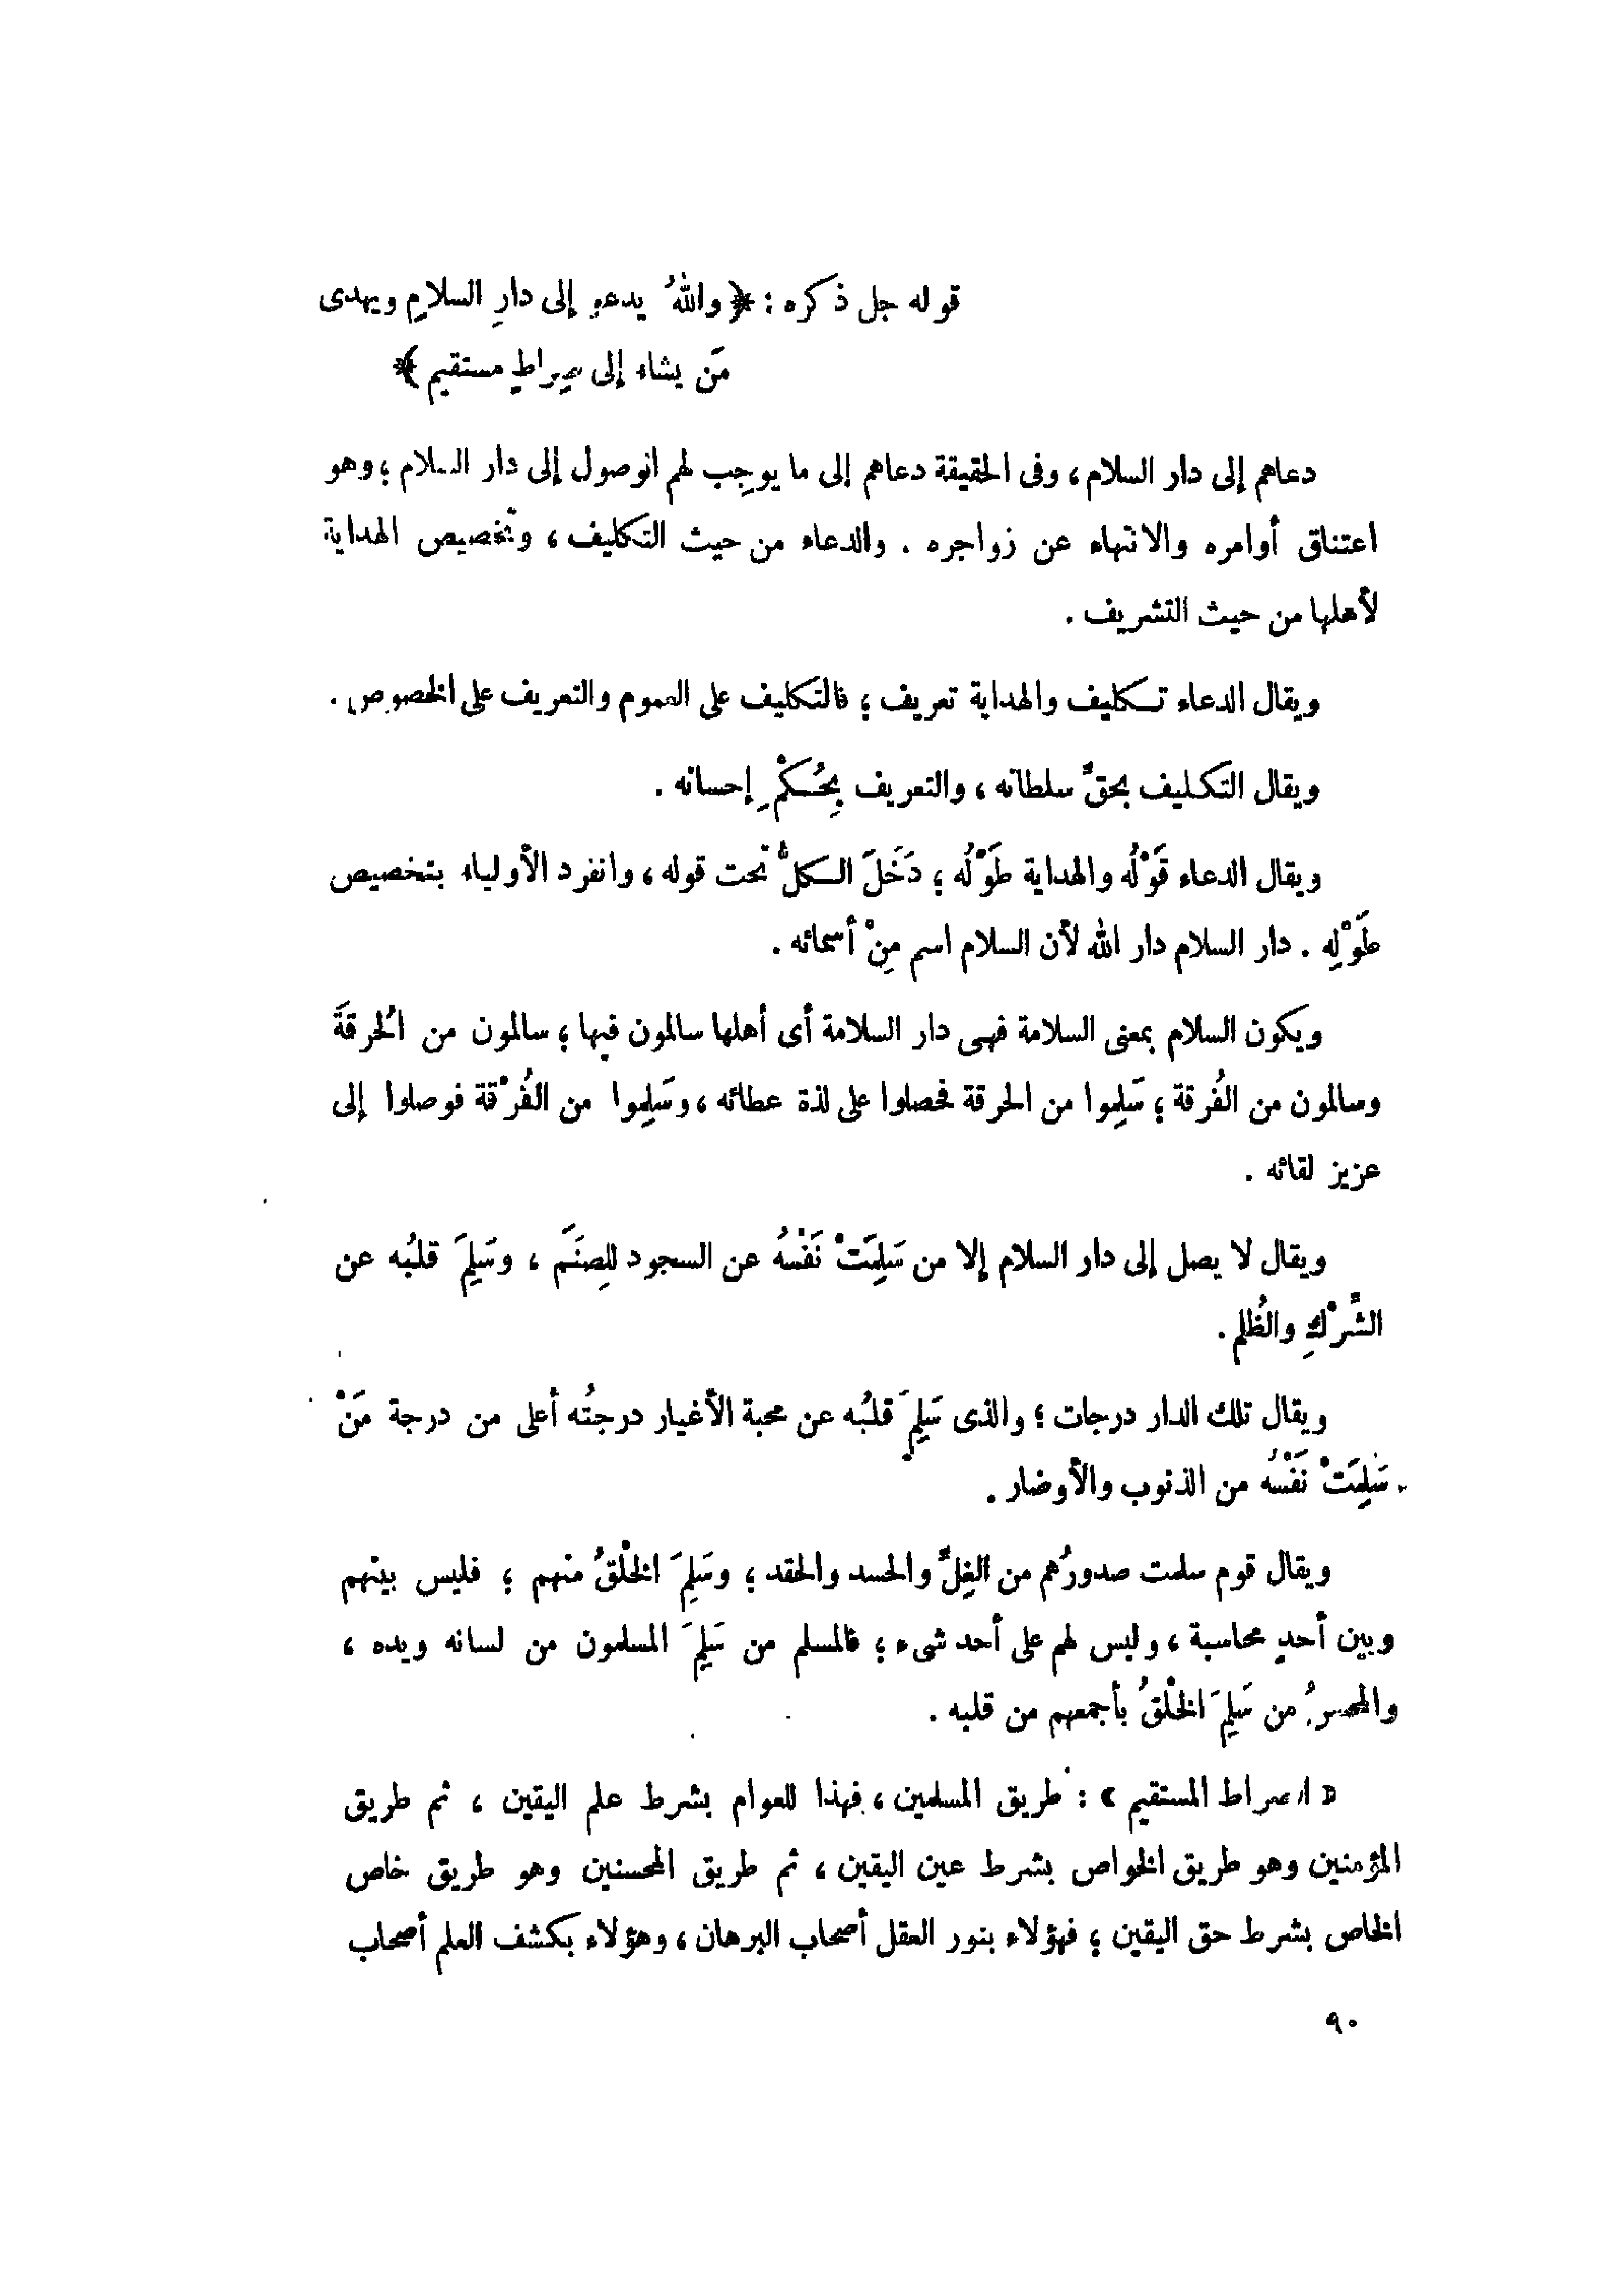 قوله جل ذكره : ﴿ واللهُ يدعو إلى دارِ السلامِ ويهدى
مَن يشاء إلى صِراطٍ مستقيم ﴾
دعاهم إلى دار السلام ، وفى الحقيقة دعاهم إلى ما يوجِب لهم الوصول إلى دار السلام ؛ وهو
اعتناق أوامره والانتهاء عن زواجره . والدعاء من حيث التكليف ، وتخصيص الهداية
لأهلها من حيث التشريف .
ويقال الدعاء تكليف والهداية تعريف ؛ فالتكليف على العموم والتعريف على الخصوص .
ويقال التكليف بحقِّ سلطانه ، والتعريف بِحُكْمِ إحسانه .
ويقال الدعاء قَوْلُه والهداية طَوْلُه ؛ دَخَلَ الكلُّ تحت قوله ، وانفرد الأولياء بتخصيص
طَوْلِه . دار السلام دار الله لأن السلام اسم مِنْ أسمائه .
ويكون السلام بمعنى السلامة فهى دار السلامة أى أهلها سالمون فيها ؛ سالمون من الحُرقَةَ
وسالمون من الفُرقة ؛ سَلِموا من الحرقة فحصلوا على لذة عطائه ، وسَلِموا من الفُرْقة فوصلوا إلى
عزيز لقائه .
ويقال لا يصل إلى دار السلام إلا من سَلِمَتْ نَفْسُه عن السجود للِصنَم ، وسَلِمَ قلبُه عن
الشِّرْكِ والظُلم .
ويقال تلك الدار درجات ؛ والذى سَلِمَ قلبُه عن محبة الأغيار درجتُه أعلى من درجة مَنْ
سَلِمَتْ نَفْسُه من الذنوب والأوضار .
ويقال قوم سلمت صدورُهم من الغِلِّ والحسد والحقد ؛ وسَلِمَ الخلْقُ منهم ؛ فليس بينهم
وبين أحدٍ محاسبة ، وليس لهم على أحد شىء ؛ فالمسلم من سَلِمَ المسلمون من لسانه ويده ،
والمحسنُ من سَلِمَ الخلْقُ بأجمعهم من قلبه .
« الصراط المستقيم » : طريق المسلمين ، فهذا للعوام بشرط علم اليقين ، ثم طريق
المؤمنين وهو طريق الخواص بشرط عين اليقين ، ثم طريق المحسنين وهو طريق خاص
الخاص بشرط حق اليقين ؛ فهؤلاء بنور العقل أصحاب البرهان ، وهؤلاء بكشف العلم أصحاب
٩٠